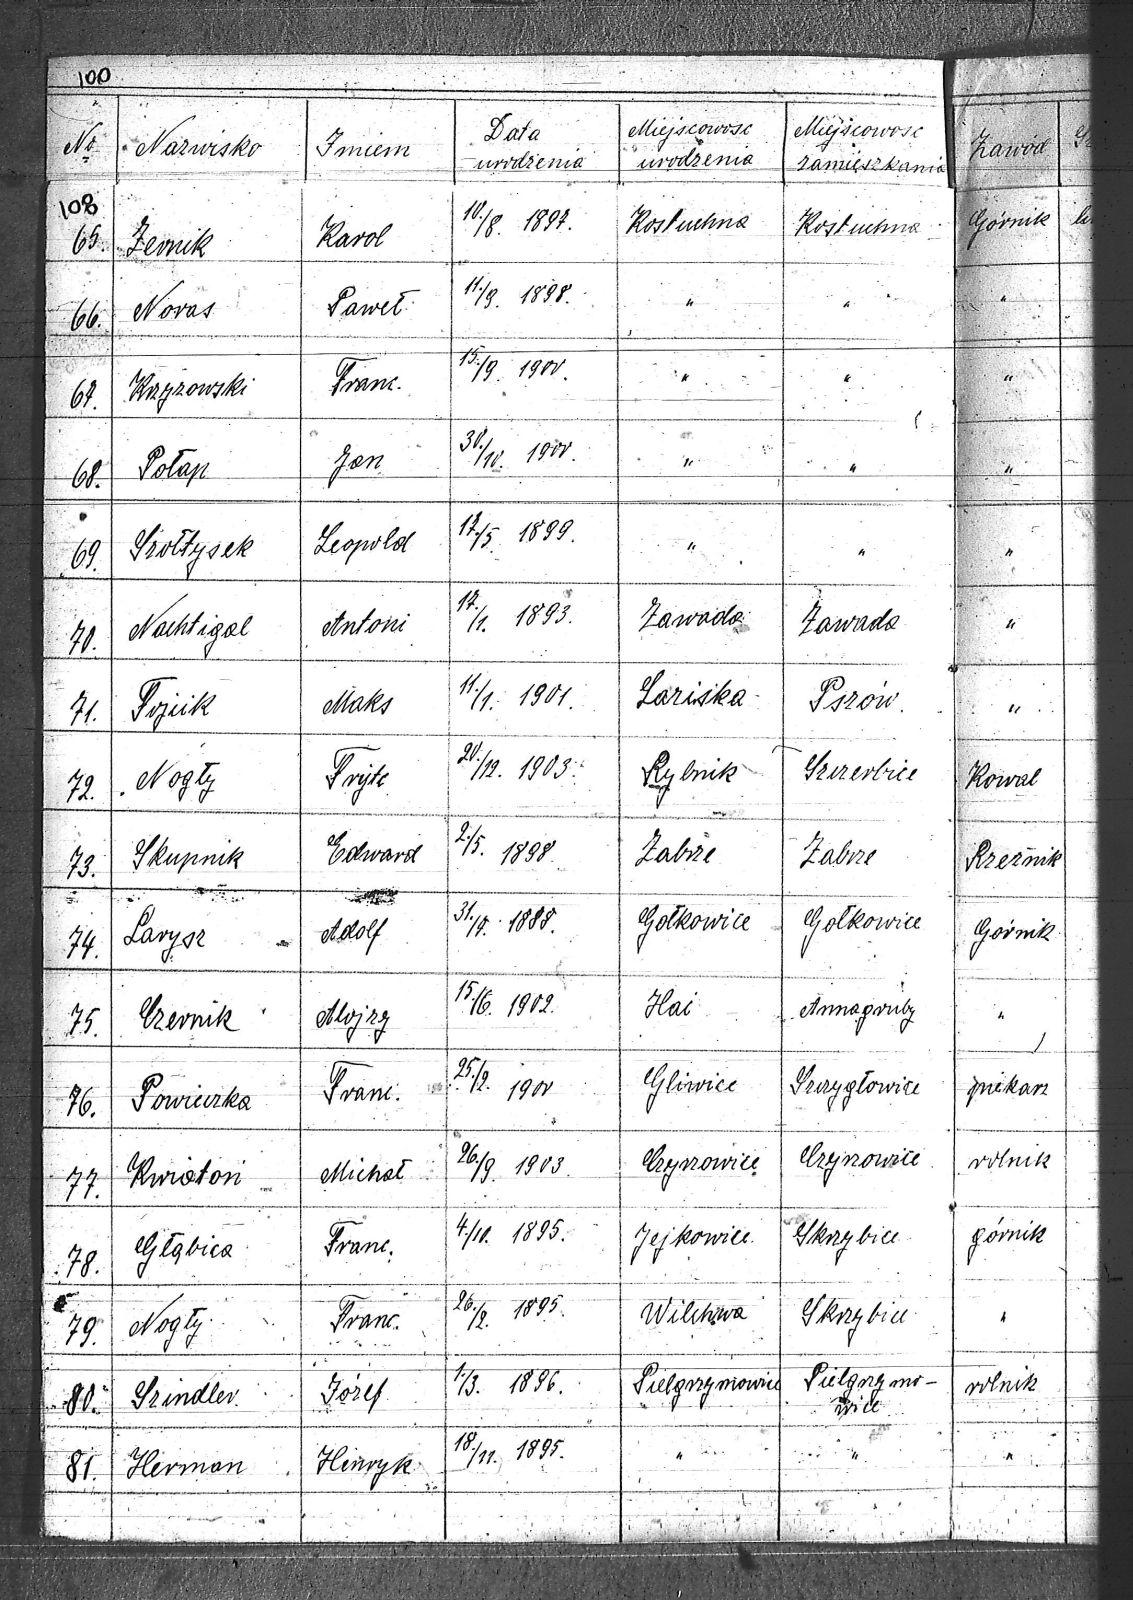 100
No Nazwisko Imiem Data urodzenia Miejscowosc urodzenia Miejscowosc zamieszkania Zawód
108
65. Zernik Karol 10./8. 1897. Kostuchna Kostuchna Górnik
66. Noras Paweł 11./9. 1898. " " "
67. Krzyzowski Franc. 15./9. 1900. " " "
68. Połap Jan 30./10. 1900. " " "
69. Szołtysek Leopold 17./5. 1899. " " "
70. Nachtigal Antoni 17./1. 1893. Zawada Zawada "
71. Maks 11./1. 1901. Lariska Pszów. "
72. Nogły Fryc 20./12. 1903. Rybnik Szczerbice Kowal
73. Skupnik Edward 2./5. 1898. Zabrze Zabrze Rzeżnik
74. Larysz Adolf 31./ 1888. Gołkowice Gołkowice Górnik
75. Czernik Alojzy 15./6. 1902. Hai Annagruby "
76. Powieczka Franc. 25./2. 1900 Gliwice Szczygłowice piekarz
77. Kwiatoń Michał 26./9. 1903. Czyzowice Czyzowice rolnik
78. Głąbica Franc. 4./10. 1895. Jejkowice Skrzybice górnik
79. Nogły Franc. 26./2. 1895. Wilchwa Skrzybice "
80. Szindler Józef 1./3. 1896. Pielgrzymowice Pielgrzymo-
wice rolnik
81. Herman Hinryk 18./11. 1895. " " "